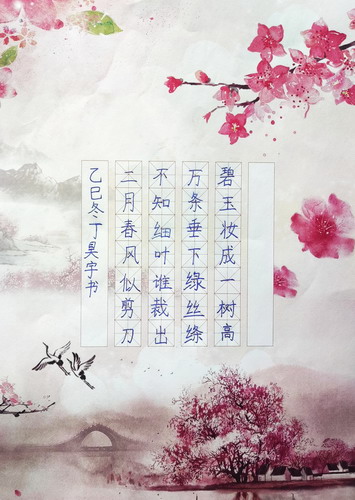 碧玉妆成一树高
万条垂下绿丝绦
不知细叶谁裁出
二月春风似剪刀
乙巳冬丁昊宇书